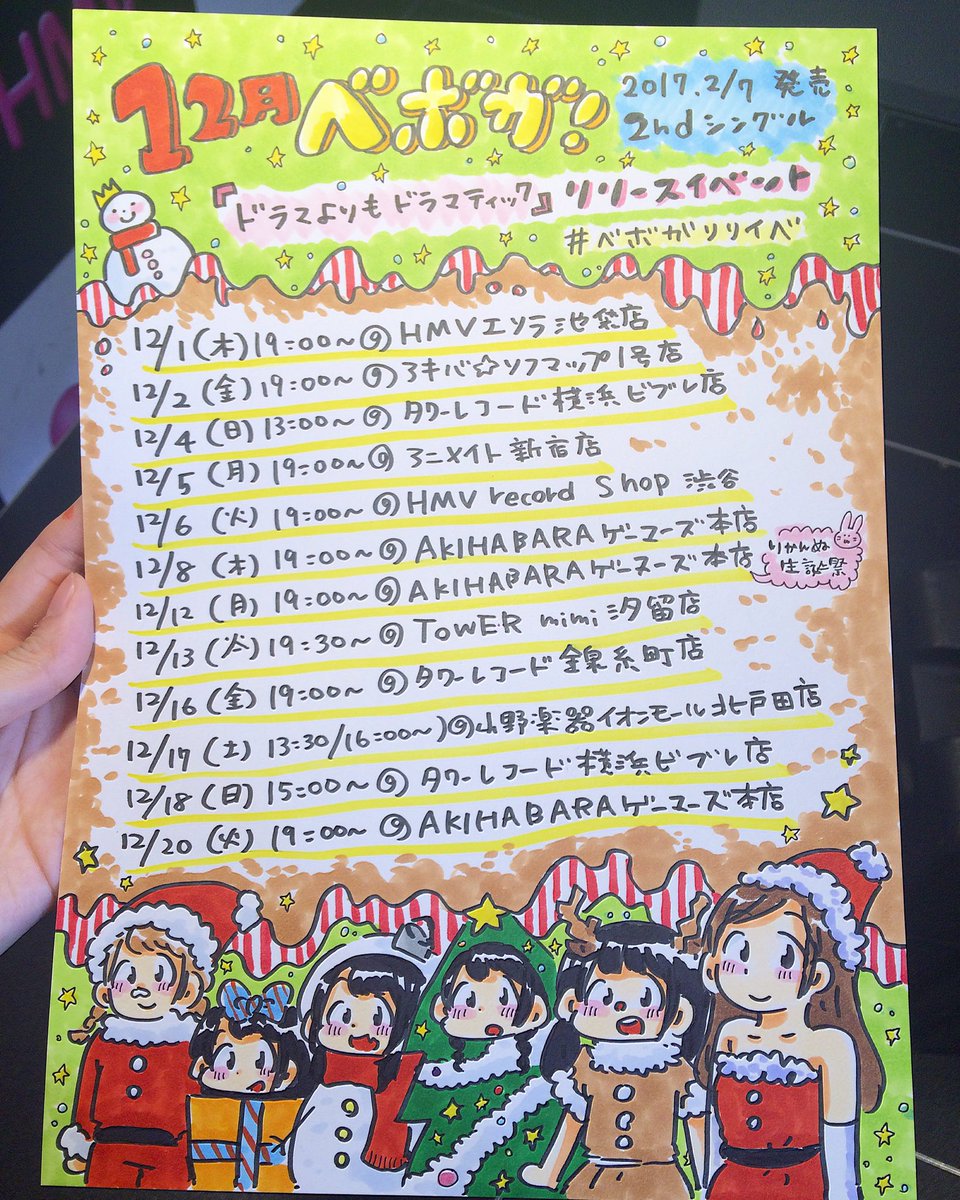 12月 ベボガ!
2017.2/7 発売
2ndシングル
『ドラマよりもドラマティック』リリースイベント
#ベボガリリイベ
12/1(木)19:00~@HMVエソラ池袋店
12/2(金)19:00~@アキバ☆ソフマップ1号店
12/4(日)13:00~@タワーレコード横浜ビブレ店
12/5(月)19:00~@アニメイト新宿店
12/6(火)19:00~@HMV record Shop 渋谷
12/8(木)19:00~@AKIHABARAゲーマーズ本店
12/12(月)19:00~@AKIHABARAゲーマーズ本店
りかんぬ
生誕祭
12/13(火)19:30~@TOWER mimi汐留店
12/16(金)19:00~@タワーレコード錦糸町店
12/17(土)13:30/16:00~)@山野楽器イオンモール北戸田店
12/18(日)15:00~@タワーレコード横浜ビブレ店
12/20(火)19:00~@AKIHABARAゲーマーズ本店